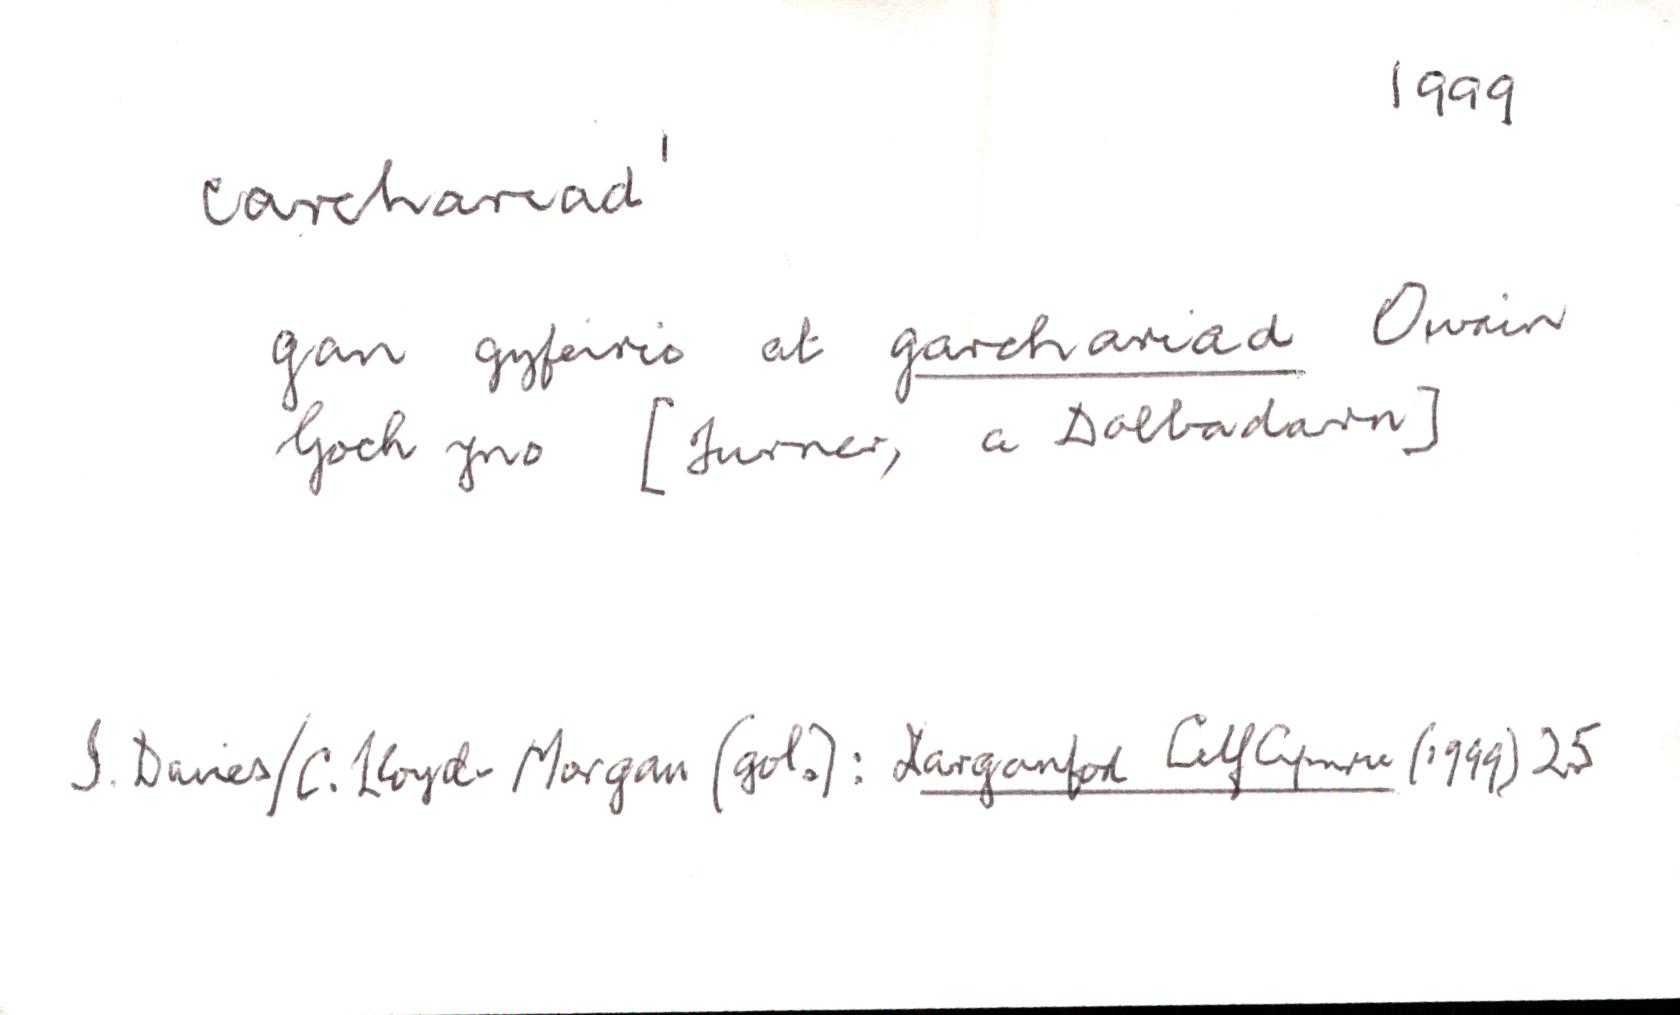 1999
carchariad¹
gan gyfeirio at garchariad Owain
Goch yno [Turner, a Dolbadarn]
I. Davies/C. Lloyd-Morgan (gol.): Darganfod Celf Cymru (1999) 25